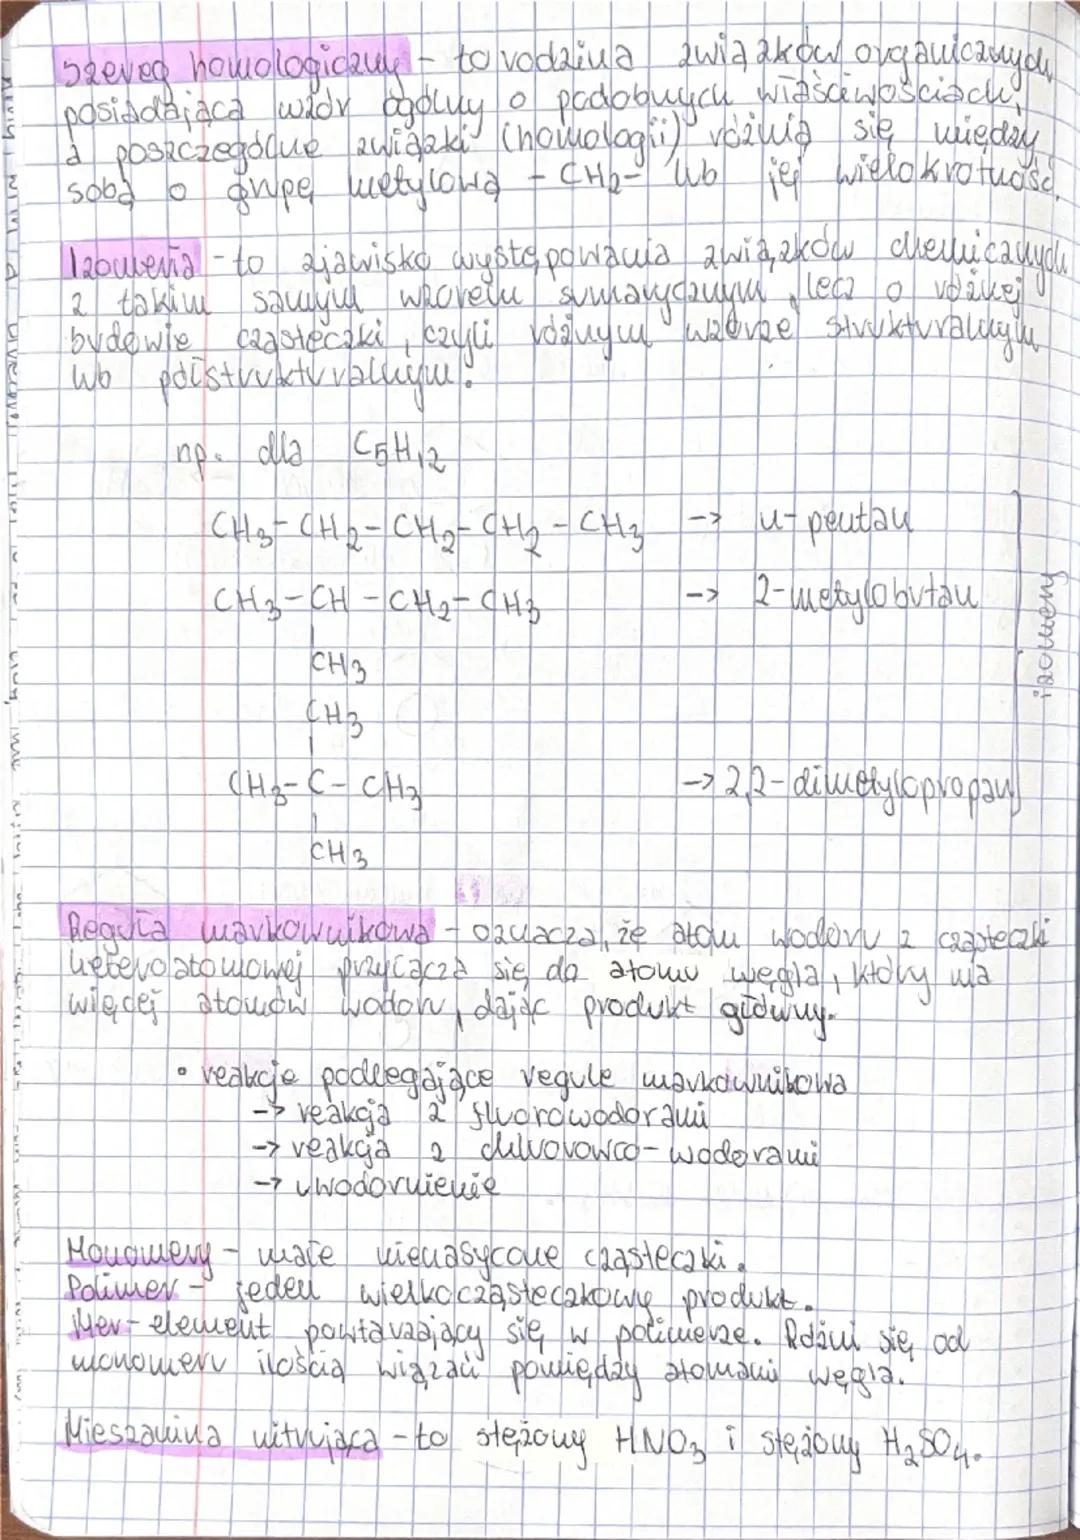 Szereg homologiczny - to rodzina związków organicznych
posiadająca wzór ogólny o podobnych właściwościach,
a poszczególne związki (homologii) różnią się między
sobą o grupę metylową -CH2- lub jej wielokrotność.
Izomeria - to zjawisko występowania związków chemicznych
z takim samym wzorem sumarycznym, lecz o różnej
budowie cząsteczki, czyli różnym wzorze strukturalnym
lub półstrukturalnym.
np. dla C5H12
CH3-CH2-CH2-CH2-CH3 -> n-pentan
CH3-CH-CH2-CH3 -> 2-metylobutan
CH3
CH3
CH3-C-CH3 -> 2,2-dimetylopropan
CH3
izomery
Reguła markownikowa - oznacza, że atom wodoru z cząsteczki
heteroatomowej przyłącza się do atomu węgla, który ma
więcej atomów wodoru, dając produkt główny.
• reakcje podlegające regule markownikowa
-> reakcja z fluorowodorami
-> reakcja z chlorowco-wodorami
-> uwodornienie
Monomery - małe nienasycone cząsteczki.
Polimer - jeden wielkocząsteczkowy produkt.
Mer - element powtarzający się w polimerze. Różni się od
monomeru ilością wiązań pomiędzy atomami węgla.
Mieszanina nitrująca - to stężony HNO3 i stężony H2SO4.